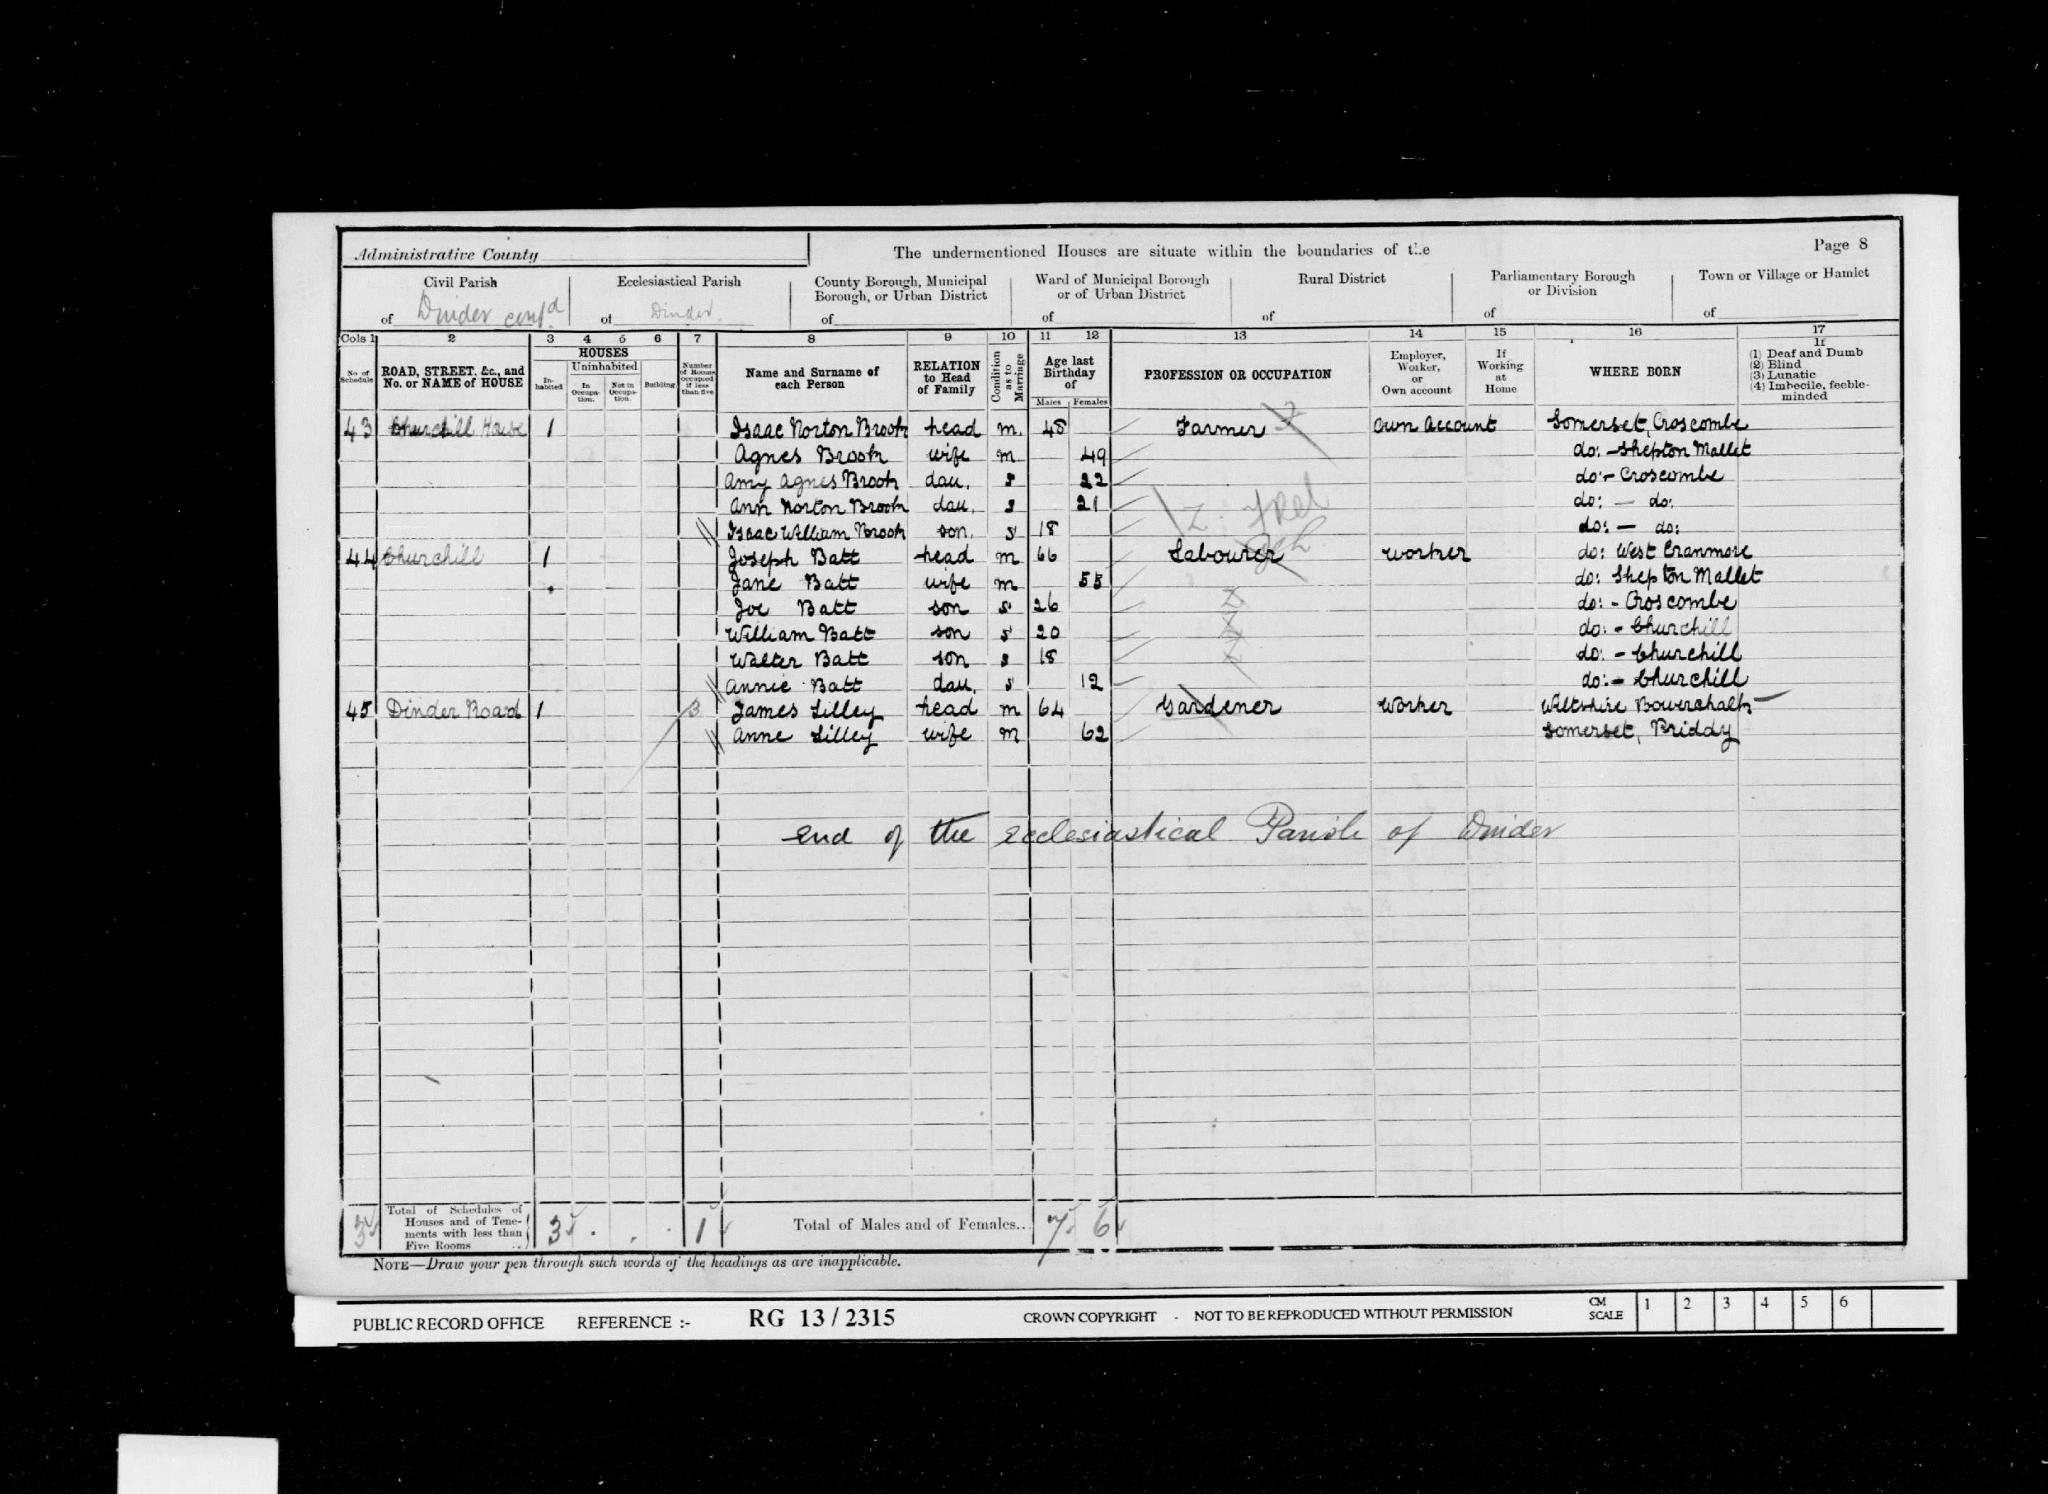 Administrative County The undermentioned Houses are situate within the boundaries of the Page 8
Civil Parish Ecclesiastical Parish County Borough, Municipal Borough, or Urban District Ward of Municipal Borough or of Urban District Rural District Parliamentary Borough or Division Town or Village or Hamlet
of Dinder contd of Dinder of of of of of
Cols 1 2 3 4 5 6 7 8 9 10 11 12 13 14 15 16 17
No. of Schedule ROAD, STREET, &c., and No. or NAME of HOUSE HOUSES Inhabited Uninhabited In Occupation. Not in Occupation. Building. Number of Rooms occupied if less than five Name and Surname of each Person RELATION to Head of Family Condition as to Marriage Age last Birthday of Males Females PROFESSION OR OCCUPATION Employer, Worker, or Own account If Working at Home WHERE BORN If (1) Deaf and Dumb (2) Blind (3) Lunatic (4) Imbecile, feeble-minded
43 Churchill House 1 Isaac Norton Brook head m. 48 Farmer Own Account Somerset, Croscombe
Agnes Brook wife m 49 do: - Shepton Mallet
Amy Agnes Brook dau. s 22 do: - Croscombe
Ann Norton Brook dau. s 21 do: - do:
Isaac William Brook son. s 18 do: - do:
44 Churchill 1 Joseph Batt head m 66 Labourer Worker do: West Cranmore
Jane Batt wife m 55 do: Shepton Mallet
Joe Batt son s 26 do: - Croscombe
William Batt son s 20 do: - Churchill
Walter Batt son s 18 do: - Churchill
Annie Batt dau. s 12 do: - Churchill
45 Dinder Road 1 3 James Lilley head m 64 Gardener Worker Wiltshire Bowerchalk
Anne Lilley wife m 62 Somerset, Priddy
End of the Ecclesiastical Parish of Dinder
3 Total of Schedules of Houses and of Tenements with less than Five Rooms 3 1 Total of Males and of Females... 7 6
NOTE—Draw your pen through such words of the headings as are inapplicable.
PUBLIC RECORD OFFICE REFERENCE :- RG 13 / 2315 CROWN COPYRIGHT - NOT TO BE REPRODUCED WITHOUT PERMISSION CM SCALE 1 2 3 4 5 6